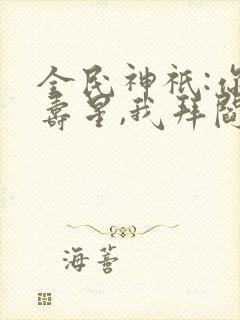 全民神祇:你
寿星,我拜阎
海薹